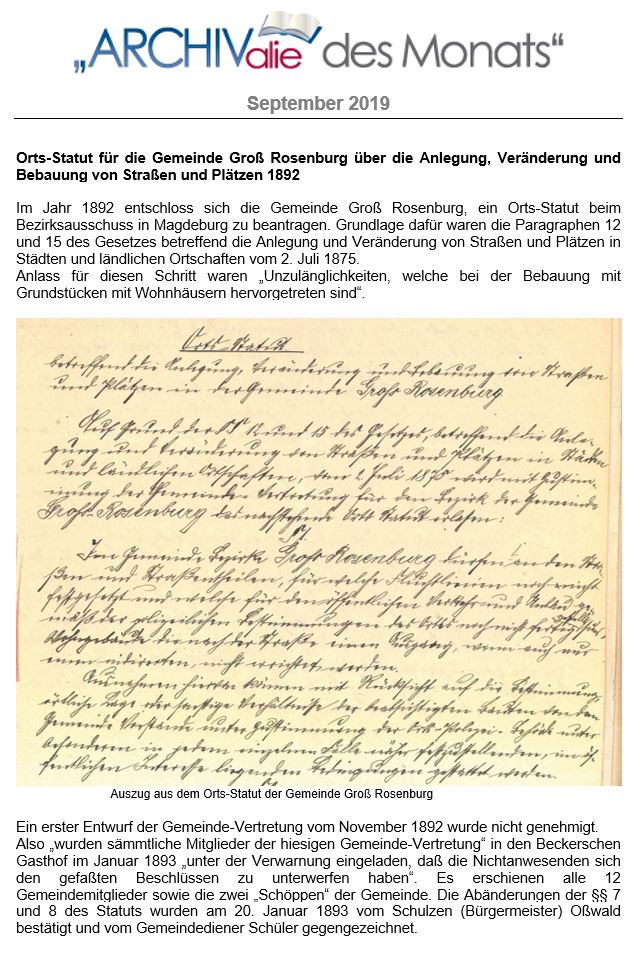 „ARCHIValie des Monats“
September 2019
Orts-Statut für die Gemeinde Groß Rosenburg über die Anlegung, Veränderung und
Bebauung von Straßen und Plätzen 1892
Im Jahr 1892 entschloss sich die Gemeinde Groß Rosenburg, ein Orts-Statut beim
Bezirksausschuss in Magdeburg zu beantragen. Grundlage dafür waren die Paragraphen 12
und 15 des Gesetzes betreffend die Anlegung und Veränderung von Straßen und Plätzen in
Städten und ländlichen Ortschaften vom 2. Juli 1875.
Anlass für diesen Schritt waren „Unzulänglichkeiten, welche bei der Bebauung mit
Grundstücken mit Wohnhäusern hervorgetreten sind“.
Orts-Statut
betreffend die Anlegung, Veränderung und Bebauung von Straßen
und Plätzen in der Gemeinde Gross Rosenburg
Auf Grund der §§ 12 und 15 des Gesetzes, betreffend die Anle-
gung und Veränderung von Straßen und Plätzen in Städten
und ländlichen Ortschaften, vom 2. Juli 1875 wird mit Zustim-
mung der Gemeinde-Vertretung für den Bezirk der Gemeinde
Gross-Rosenburg das nachstehende Orts Statut erlassen:
§ 1.
Im Gemeinde Bezirke Gross Rosenburg dürfen an den Stra-
ßen und Straßentheilen, für welche Fluchtlinien noch nicht
festgesetzt und welche für den öffentlichen Verkehr und Anbau ge-
mäß der polizeilichen Bestimmungen des Orts noch nicht fertig gestellt sind,
Wohngebäude die nach der Straße einen Ausgang, wenn auch nur
einen indirecten, nicht errichtet werden.
Ausnahmen hiervon können mit Rücksicht auf die Bestimmung,
örtliche Lage oder sonstige Verhältnisse der beabsichtigten Bauten von dem
Gemeinde Vorstande unter Zustimmung der Orts-Polizei-Behörde unter
besonderen in jedem einzelnen Falle näher festzustellenden, im öf-
fentlichen Interesse liegenden Bedingungen gestattet werden.
Auszug aus dem Orts-Statut der Gemeinde Groß Rosenburg
Ein erster Entwurf der Gemeinde-Vertretung vom November 1892 wurde nicht genehmigt.
Also „wurden sämmtliche Mitglieder der hiesigen Gemeinde-Vertretung“ in den Beckerschen
Gasthof im Januar 1893 „unter der Verwarnung eingeladen, daß die Nichtanwesenden sich
den gefaßten Beschlüssen zu unterwerfen haben“. Es erschienen alle 12
Gemeindemitglieder sowie die zwei „Schöppen“ der Gemeinde. Die Abänderungen der §§ 7
und 8 des Statuts wurden am 20. Januar 1893 vom Schulzen (Bürgermeister) Oßwald
bestätigt und vom Gemeindediener Schüler gegengezeichnet.